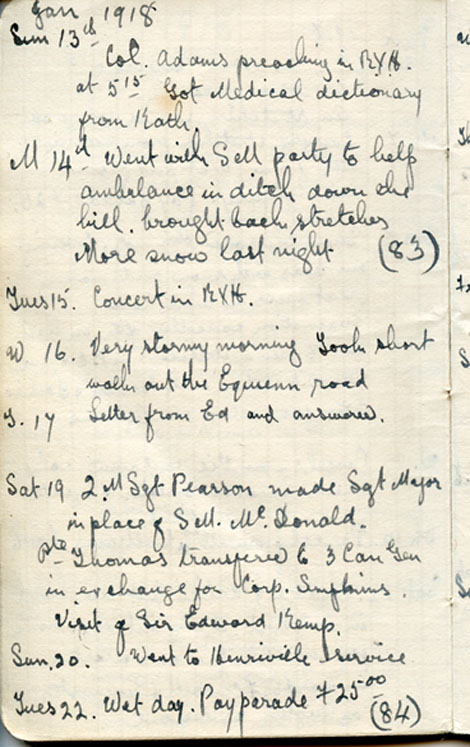 Jan 1918
Sun 13th
Col. Adams preaching in RXH.
at 5 15 Got Medical dictionary
from Kath.
M 14th Went with Sell party to help
ambulance in ditch down the
hill. brought back stretches
More snow last night (83)
Tues 15. Concert in RXH.
W. 16. Very stormy morning Took short
walk out the Equienn road
T. 17 Letter from Ed and answered.
Sat 19 2. M Sgt Pearson made Sgt Major
in place of S.M. Mc. Donald.
Pte Thomas transfered to 3 Can Gen
in exchange for Corp. Simpkins.
Visit of Sir Edward Kemp.
Sun. 20. Went to Henriville service
Tues 22. Wet day. Pay perade 25 00
(84)